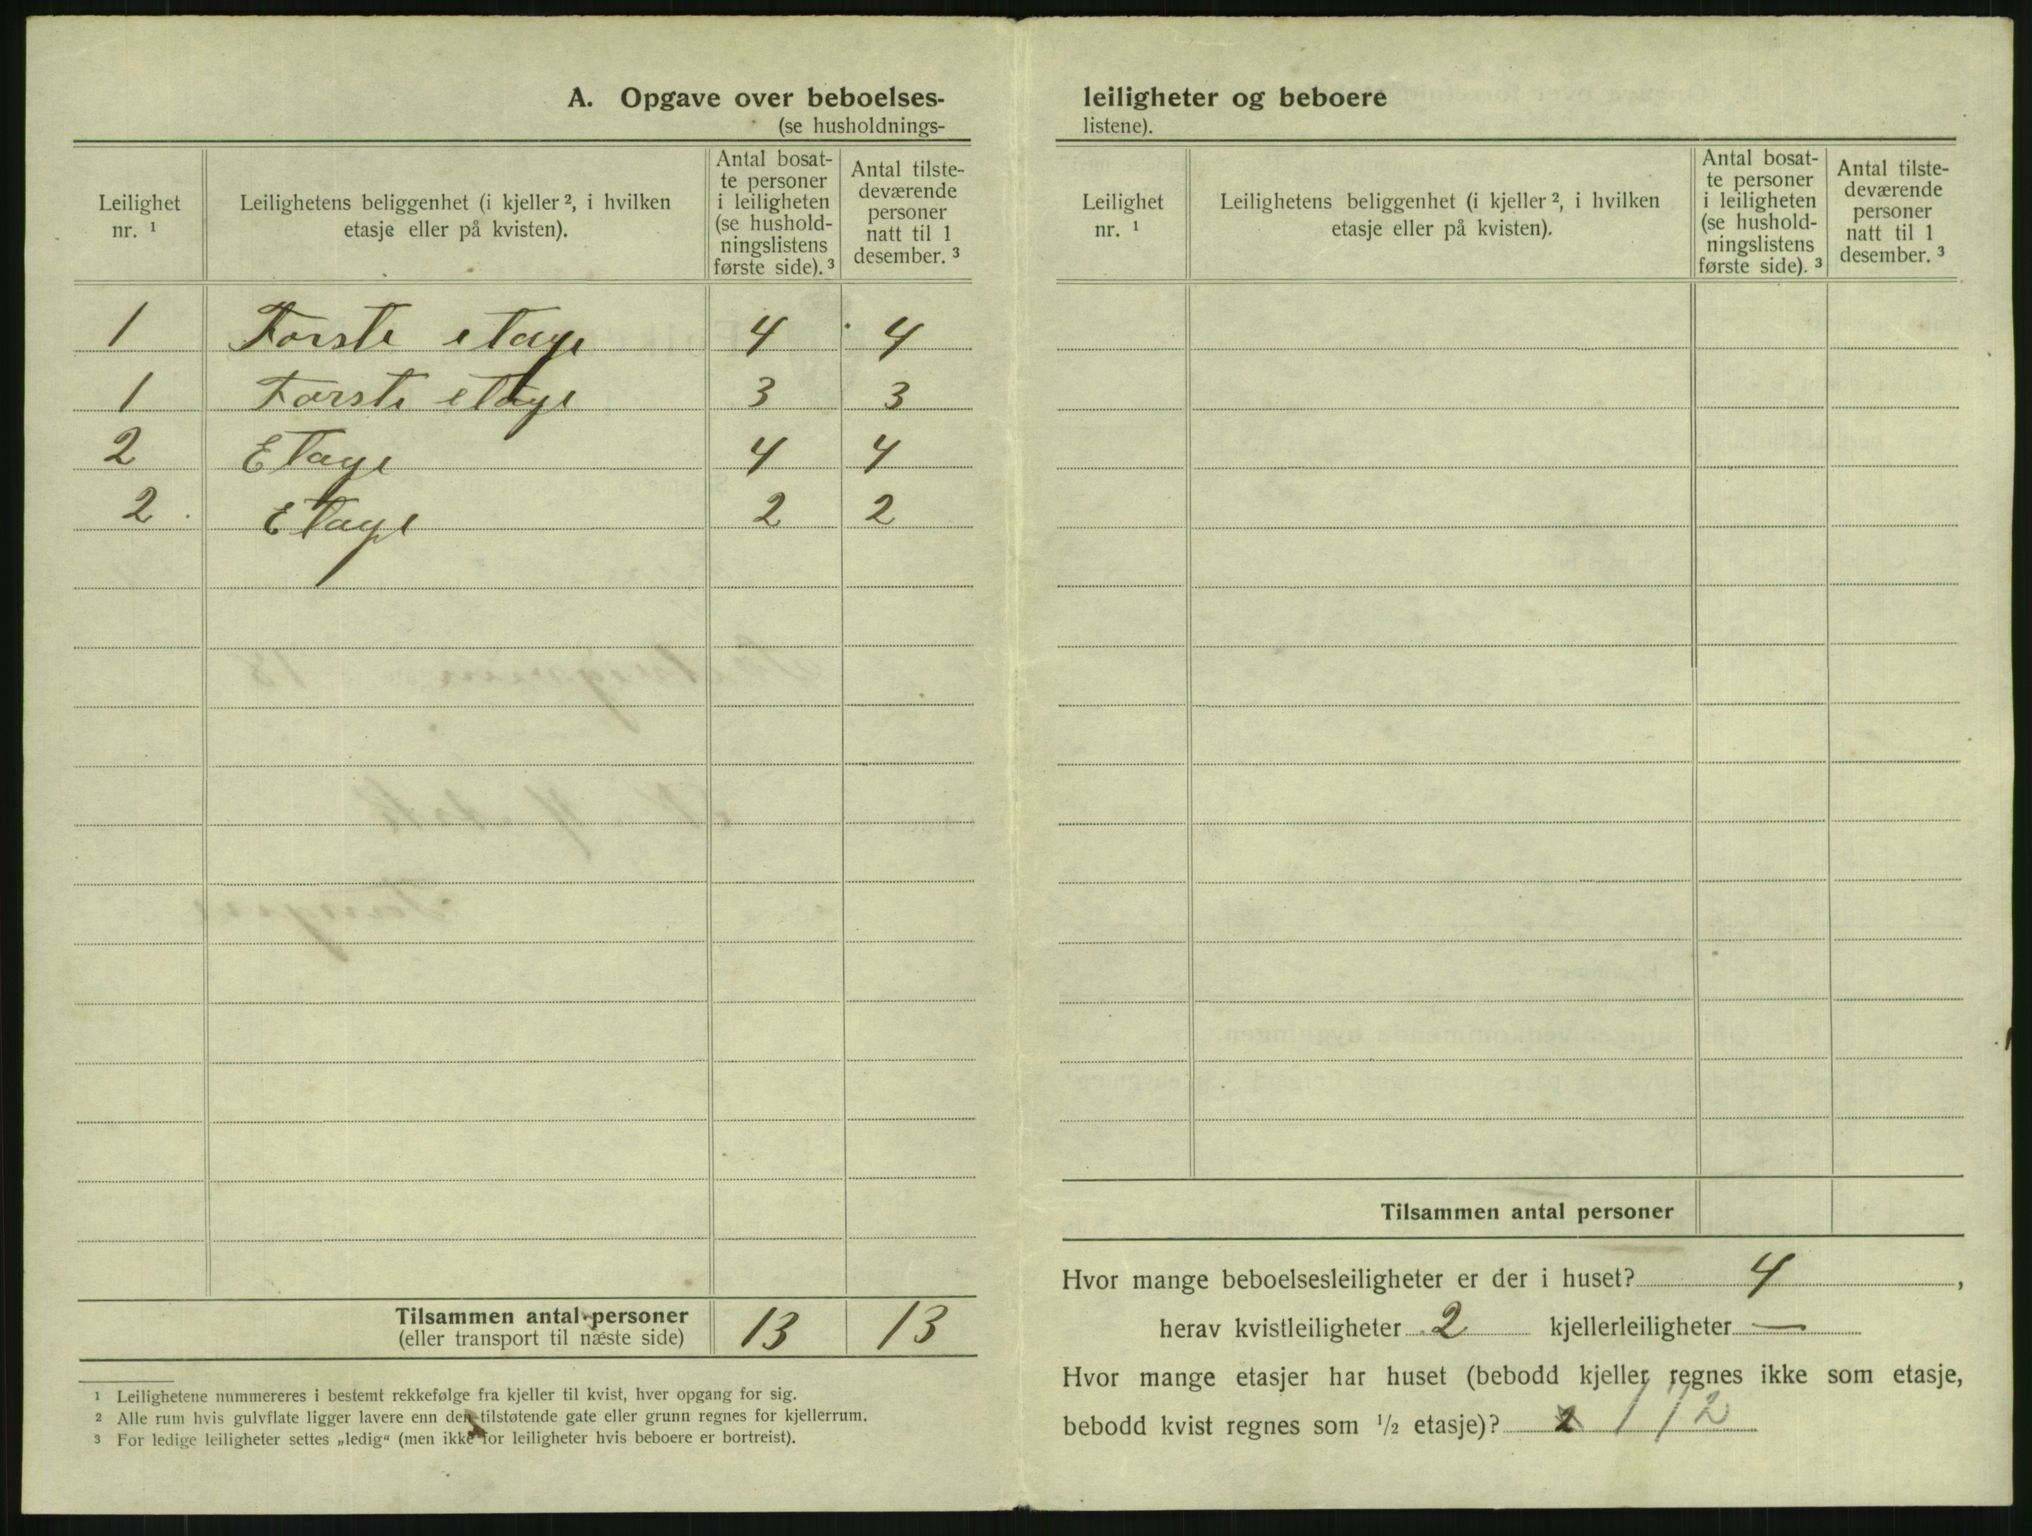 A. Opgave over beboelses-
(se husholdnings-
Leilighet
nr. ¹
Leilighetens beliggenhet (i kjeller ², i hvilken
etasje eller på kvisten).
Antal bosat-
te personer
i leiligheten
(se hushold-
ningslistens
første side). ³
Antal tilste-
deværende
personer
natt til 1
desember. ³
1 Forste etage 4 4
1 Forste etage 3 3
2 Etage 4 4
2 Etage 2 2
Tilsammen antal personer 13 13
(eller transport til næste side)
¹ Leilighetene nummereres i bestemt rekkefølge fra kjeller til kvist, hver opgang for sig.
² Alle rum hvis gulvflate ligger lavere enn den tilstøtende gate eller grunn regnes for kjellerrum.
³ For ledige leiligheter settes „ledig“ (men ikke for leiligheter hvis beboere er bortreist).
leiligheter og beboere
listene).
Leilighet
nr. ¹
Leilighetens beliggenhet (i kjeller ², i hvilken
etasje eller på kvisten).
Antal bosat-
te personer
i leiligheten
(se hushold-
ningslistens
første side). ³
Antal tilste-
deværende
personer
natt til 1
desember. ³
Tilsammen antal personer
Hvor mange beboelsesleiligheter er der i huset? 4,
herav kvistleiligheter 2 kjellerleiligheter —
Hvor mange etasjer har huset (bebodd kjeller regnes ikke som etasje,
bebodd kvist regnes som ½ etasje)? 2 1 1/2